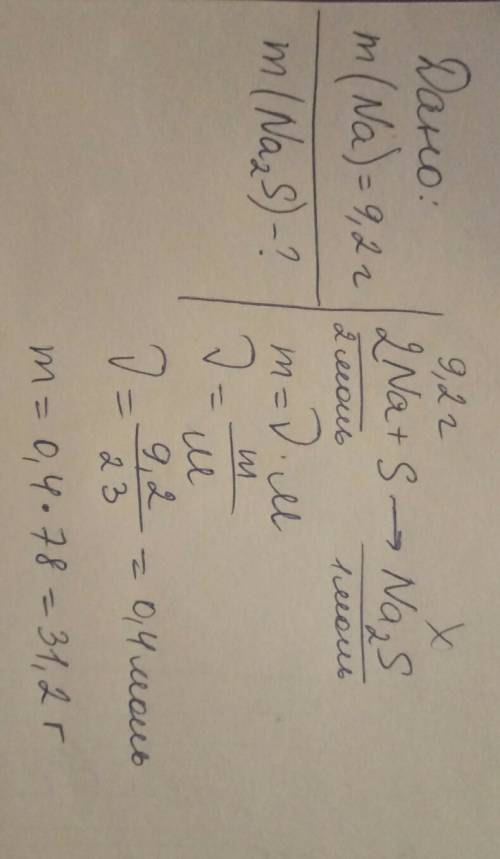 Дано:
m(Na)=9,2 г
m(Na₂S)-?
9,2 г X
2Na + S → Na₂S
2 моль 1 моль
m = ν · M
ν = m/M
ν = 9,2/23 = 0,4 моль
m = 0,4 · 78 = 31,2 г